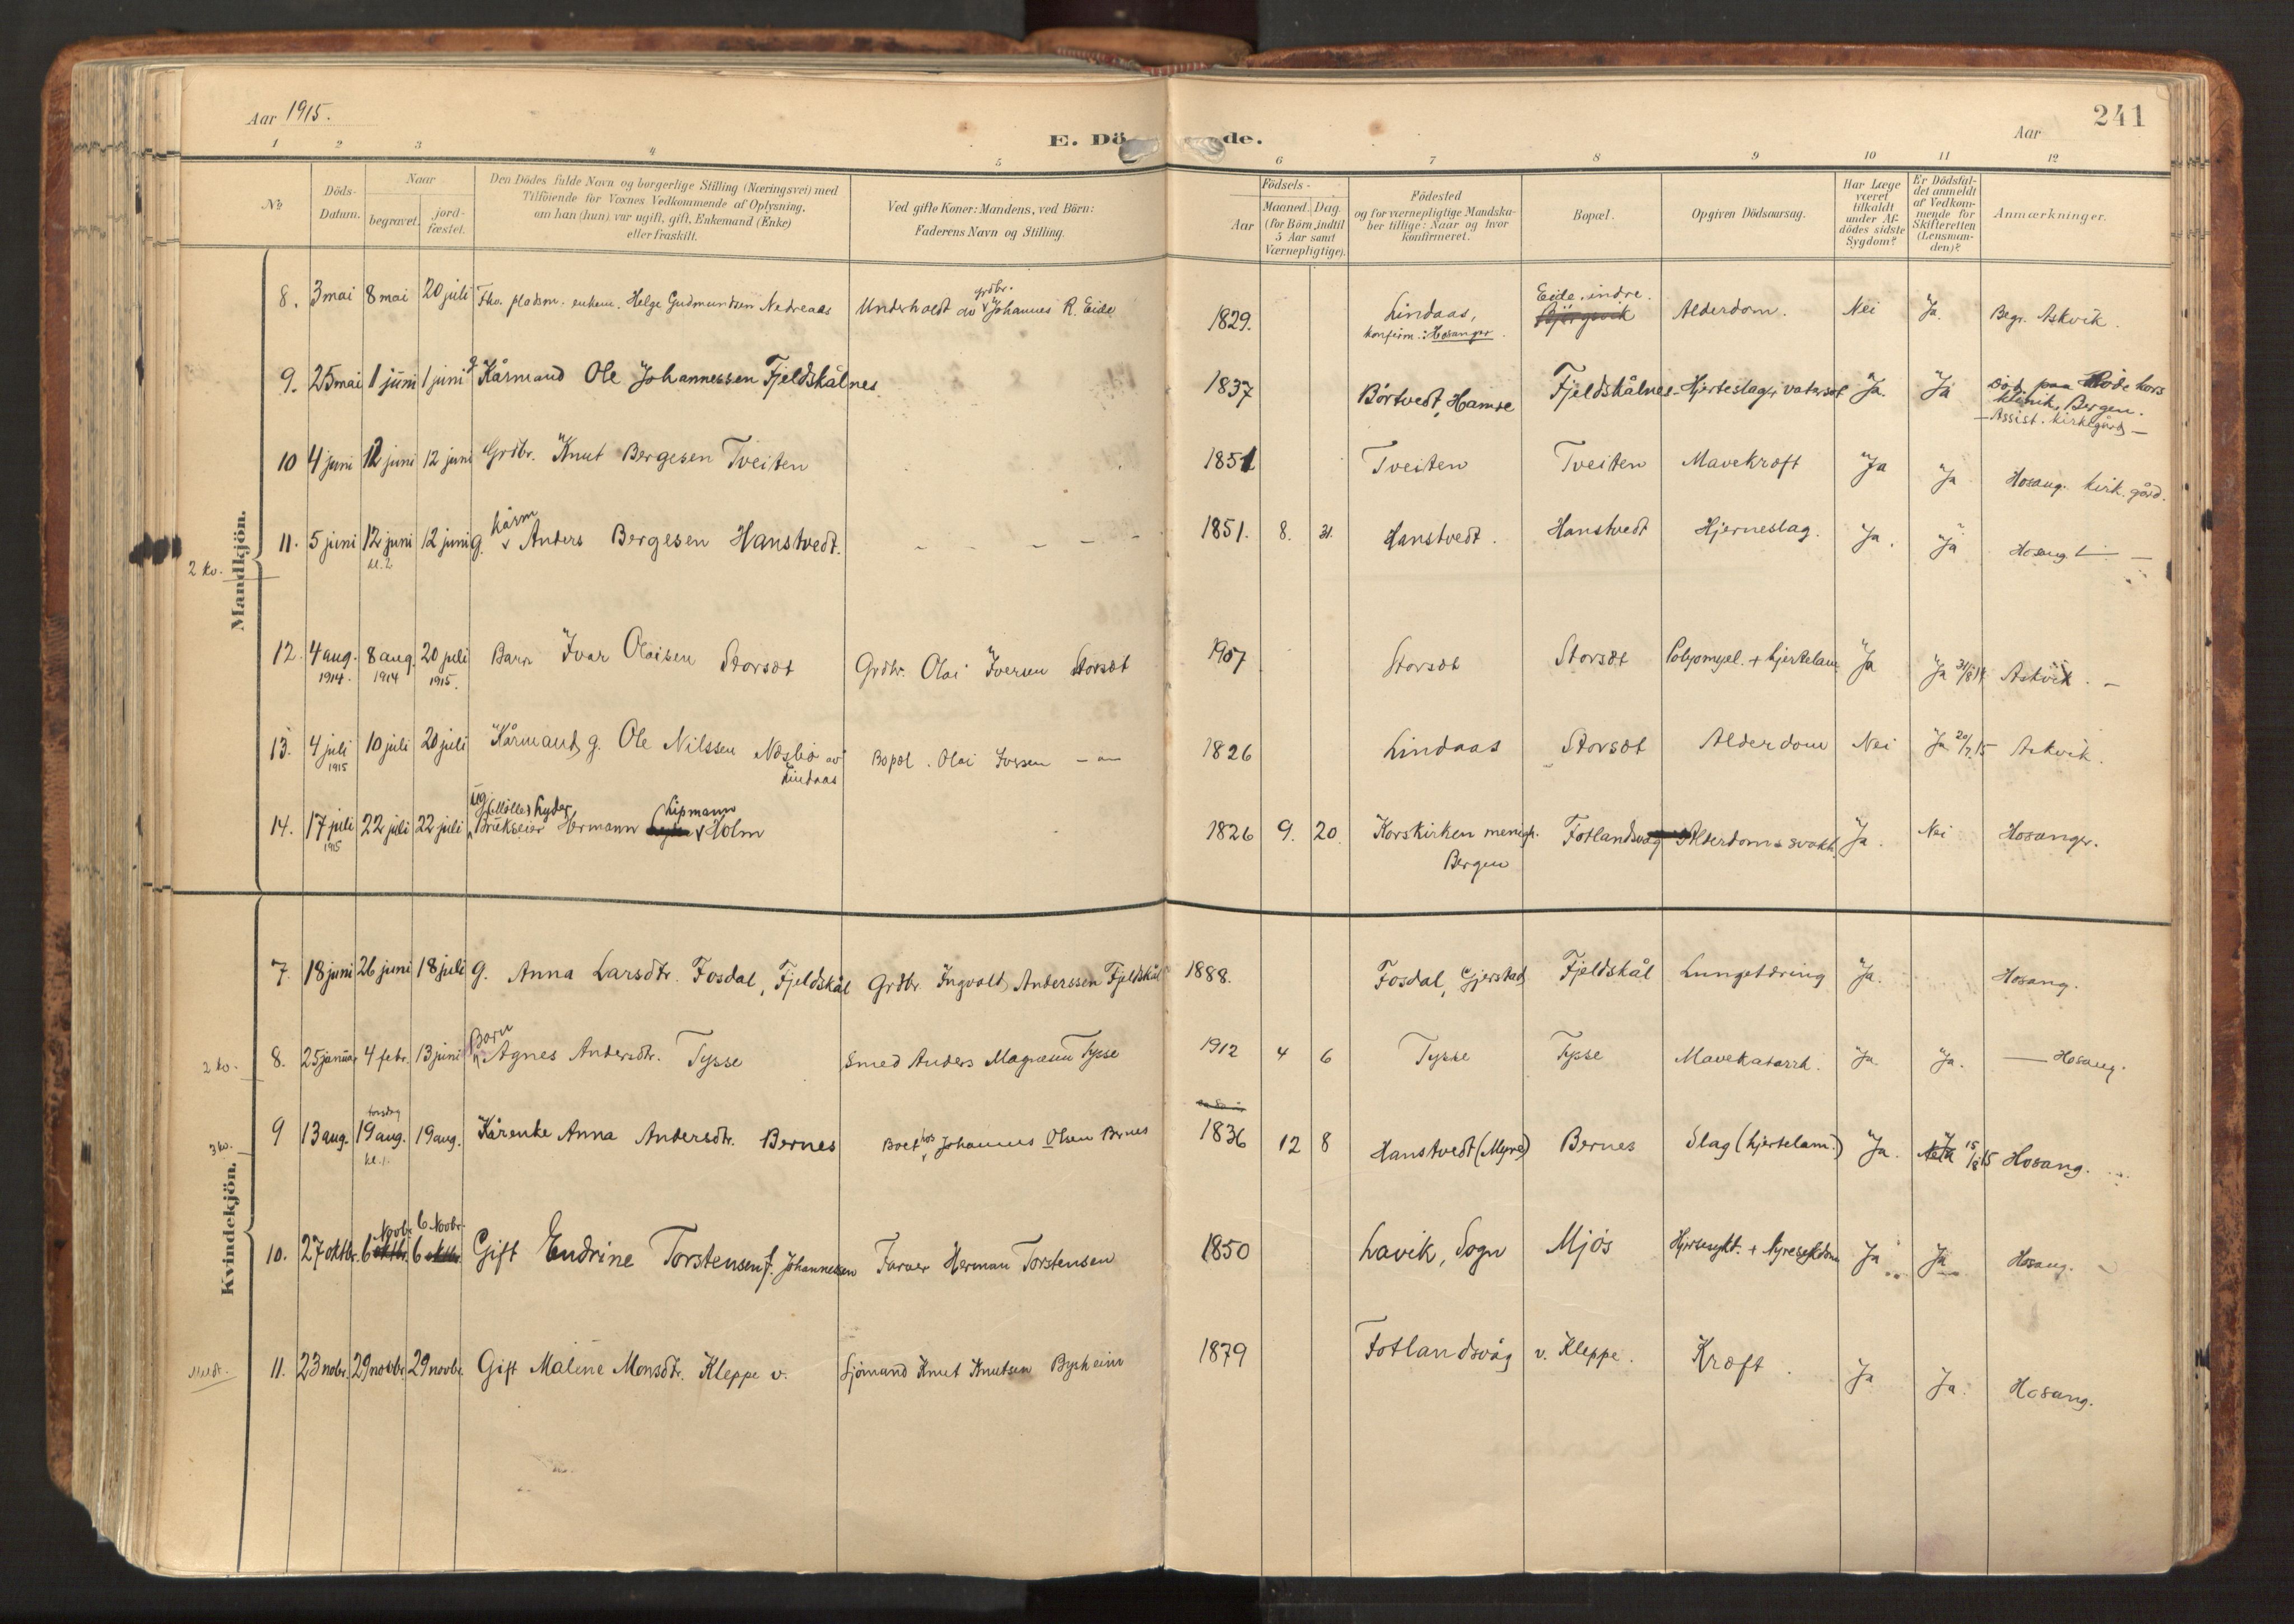 Aar 1915.
E. Dö de.
Aar
241
1 2 3 4 5 6 7 8 9 10 11 12
№
Döds-Datum.
Naar
begravet.
jord-fæstet.
Den Dödes fulde Navn og borgerlige Stilling (Næringsvei) med
Tilföiende for Voxnes Vedkommende af Oplysning,
om han (hun) var ugift, gift, Enkemand (Enke)
eller fraskilt.
Ved gifte Koner: Mandens, ved Börn:
Faderens Navn og Stilling.
Födsels-
Aar
Maaned. Dag.
(for Börn indtil
5 Aar samt
Værnepligtige).
Födested
og for værnepligtige Mandska-
ber tillige: Naar og hvor
konfirmeret.
Bopæl.
Opgiven Dödsaarsag.
Har Læge
været
tilkaldt
under Af-
dödes sidste
Sygdom?
Er Dödsfal-
det anmeldt
af Vedkom-
mende for
Skifteretten
(Lensman-
den)?
Anmærkninger.
Mandkjön.
8. 3 mai 8 mai 20 juli Fho. pladsm. enkem. Helge Gudmundsen Nedreaas Underholdt av grdbr. Johannes R. Eide 1829. Lindaas, konfirm.: Hosanger. Eide indre. Alderdom. Nei Ja. Begr. Askvik.
9. 25 mai 1 juni 1 juni g Kårmand Ole Johannessen Fjeldskålnes 1837 Börtvedt, Hamre Fjeldskålnes Hjerteslag, vatersot Ja. Ja Död paa Röde kors klinik, Bergen. - Assist. kirkegård -
10 4 juni 12 juni 12 juni Grdbr. Knut Bergesen Tveiten 1851 Tveiten Tveiten Mavekræft Ja Ja Hosang. kirk. gård.
2 kv.
11. 5 juni 12 juni kl. 2 12 juni g. kårm Anders Bergesen Hanstvedt. - - - - - 1851. 8. 31. Hanstvedt. Hanstvedt Hjerneslag. Ja. Ja Hosang.
12. 4 aug. 1914. 8 aug. 1914 20 juli 1915. Barn Ivar Olaisen Storsæt Grdbr. Olai Iversen Storsæt 1907 Storsæt Storsæt Polyomyel. + hjertelam Ja Ja 31/8 14 Askvik. -
13. 4 juli 1915 10 juli 20 juli Kårmand, g. Ole Nilssen Næsbö av Lindaas Bopæl. Olai Iversen 1826 Lindaas Storsæt Alderdom Nei Ja 20/7 15 Askvik.
14. 17 juli 1915 22 juli 22 juli ug (Möller) Brukseier Hermann Lipmann Holm 1826 9. 20. Korskirken menigh. Bergen Fotlandsvåg Alderdoms svakh. Ja. Nei Hosanger.
Kvindekjön.
7. 18 juni 26 juni 18 juli g. Anna Larsdtr. Fosdal, Fjeldskål Grdbr. Ingvald Anderssen Fjeldskål 1888. Fosdal, Gjerstad Fjeldskål Lungetæring Ja. Hosang.
2 kv.
8. 25 januar 4 febr. 13 juni Barn Agnes Andersdtr. Tysse Smed Anders Magnesen Tysse 1912 4 6 Tysse Tysse Mavekatarrh. Ja Ja. Hosang.
3 kv.
9 13 aug. torsdag 19 aug. kl. 1. 19 aug. Kårenke Anna Andersdtr. Bernes Boet hos Johannes Olsen Bernes 1836 12 8 Hanstvedt (Myre) Bernes Slag (hjertelam.) Ja. Ja 15/8 15 Hosang.
10. 27 oktbr. 6 Novbr. 6 Novbr. Gift Endrine Torstensen f. Johannessen Farver Herman Torstensen 1850 Lavik, Sogn Mjös Hjertesykd. + Nyresykdom Ja Ja Hosang.
Meldt.
11. 23 nobr. 29 novbr. 29 novbr. Gift Malene Monsdtr. Kleppe v. Sjömand Knut Knutsen Byrheim 1879 Fotlandsvåg v. Kleppe. Kræft. Ja Ja. Hosang.